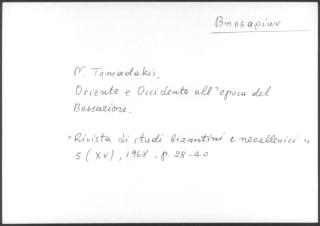 Βησσαρίων
N. Tomadakis,
Oriente e Occidente all'epoca del
Bessarione.
"Rivista di studi bizantini e neoellenici",
5 (XV), 1968, p. 28-40